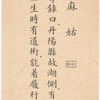 麻姑
錄曰丹陽縣故湖側有
生時有道術能着履行